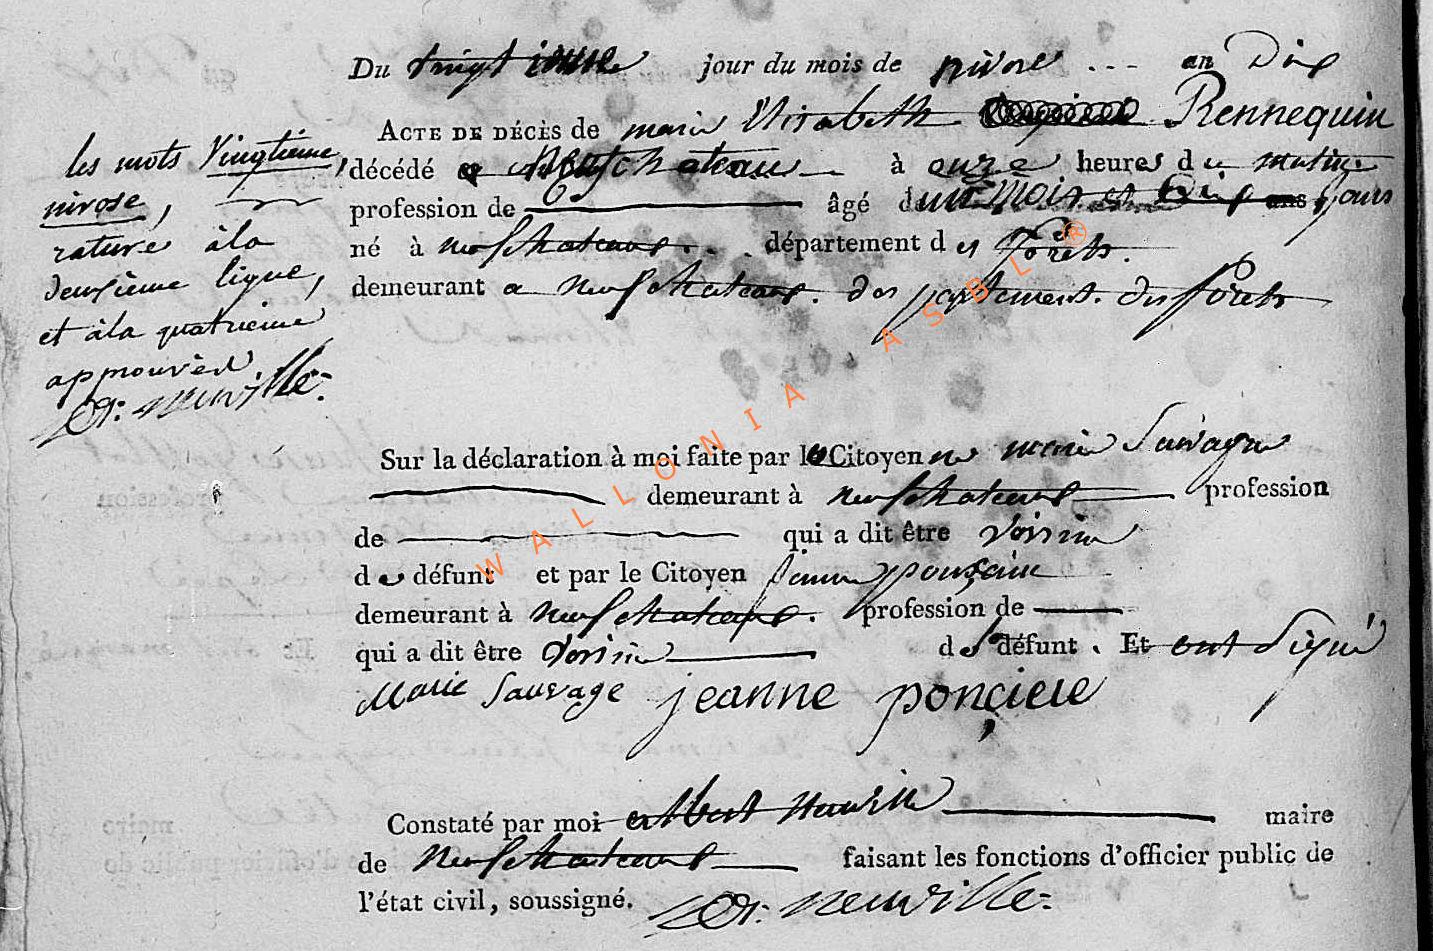 Du vingtieme jour du mois de nivose ... an Dix
ACTE DE DÉCÈS de marie Elisabeth Rennequin
décédé a Neufchateau à onze heures du matin
profession de âgé d'un mois et Dix ans jours
né à neufchateau département des Forêts.
demeurant a neufchateau. departement. des forêts
les mots Vingtième,
nivose,
rature à la
deuxième ligne,
et à la quatrieme
approuvés
A: neuville
Sur la déclaration à moi faite par la Citoyenne marie Sauvage
demeurant à neufchateau profession
de qui a dit être voisine
de défunt et par le Citoyen
demeurant à neufchateau. profession de
qui a dit être voisine de défunt. Et ont signé
Marie Sauvage jeanne ponçiele
Constaté par moi albert Neuville maire
de neufchateau faisant les fonctions d'officier public de
l'état civil, soussigné. A: neuville
WALLONIA ASBL ®